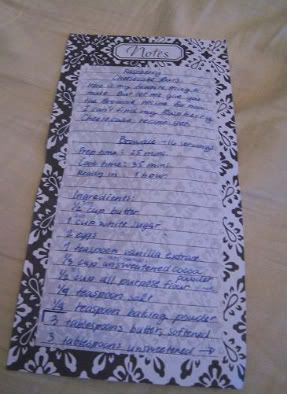 Notes
Raspberry
Cheesecake Bars
Here is my favorite thing to
make. But let me give you
the Brownie recipe for now.
I can't find my Raspberry
Cheesecake recipe yet.
Brownie - 16 servings
Prep time: 25 min.
Cook time: 35 min.
Ready in 1 hour
Ingredients:
1/2 cup butter
1 cup white sugar
2 eggs
1 teaspoon vanilla extract
1/3 cup unsweetened cocoa
powder
1/2 cup all purpose flour
1/4 teaspoon salt
1/4 teaspoon baking powder
3 tablespoons butter, softened
3 tablespoons unsweetened →